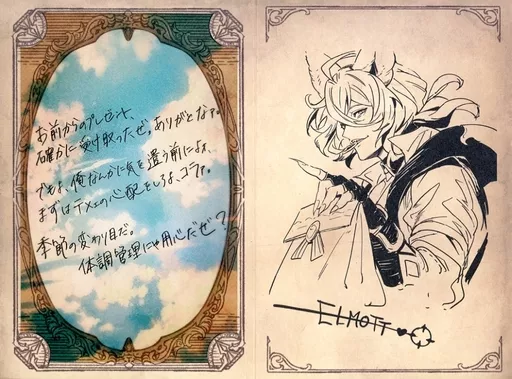 お前からのプレゼント、
確かに受け取ったぜ。ありがとなァ。
でもよ、俺なんかに気を遣う前によォ、
まずはテメェの心配をしろよ、コラァ。
季節の変わり目だ。
体調管理にゃ用心だぜ?
ELMOTT